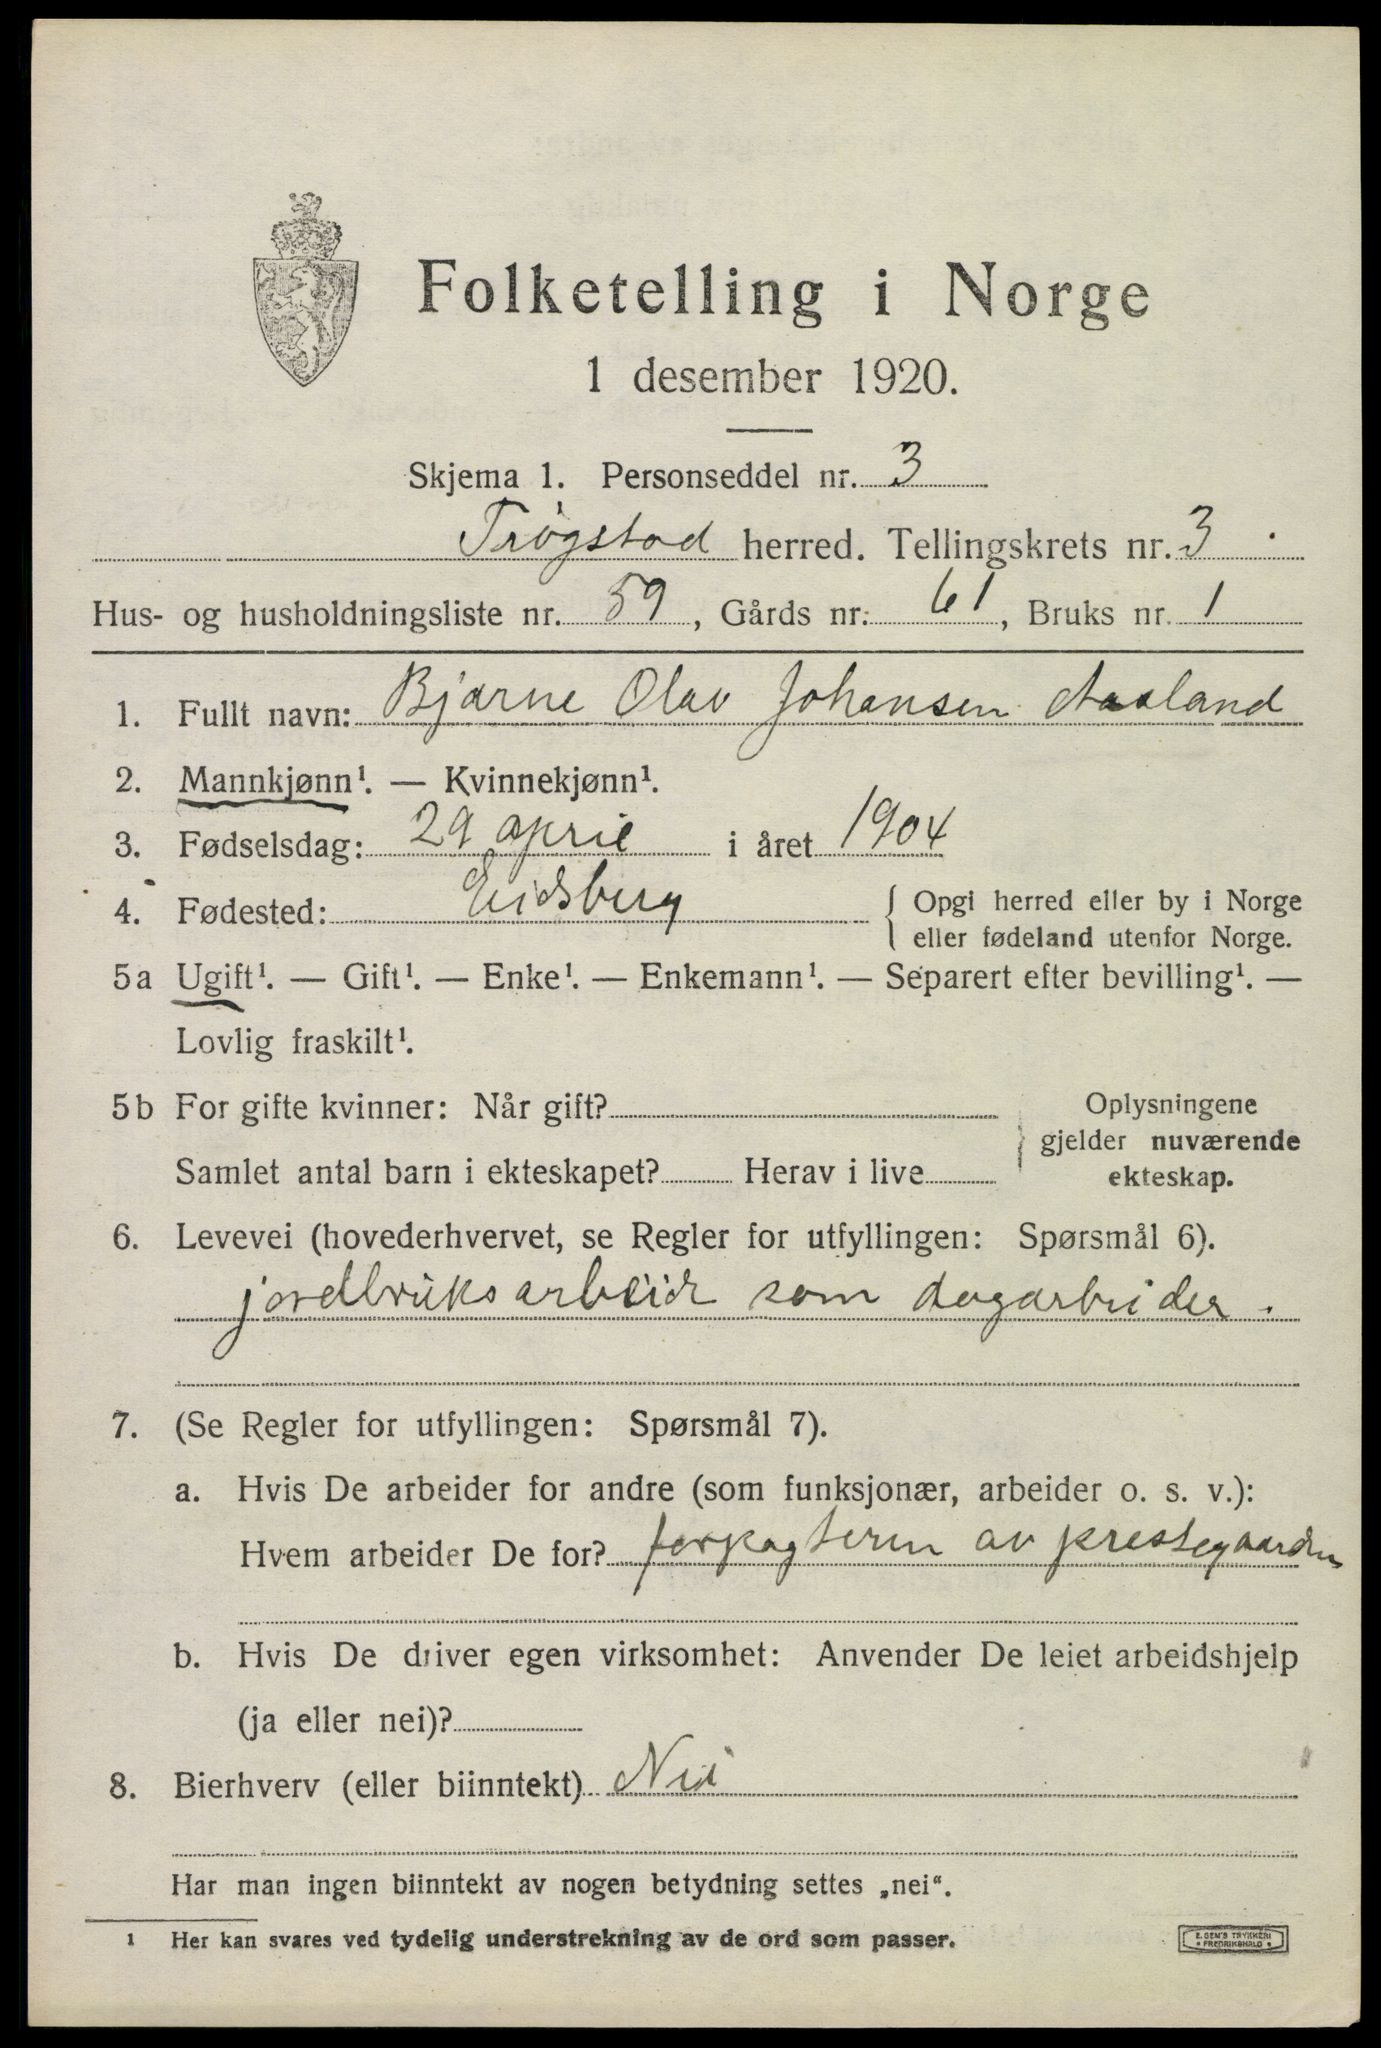 Folketelling i Norge
1 desember 1920.
Skjema 1. Personseddel nr. 3
Trøgstad herred. Tellingskrets nr. 3.
Hus- og husholdningsliste nr. 59, Gårds nr. 61, Bruks nr. 1
1. Fullt navn: Bjarne Olav Johansen Aasland
2. Mannkjønn¹. — Kvinnekjønn¹.
3. Fødselsdag: 29 april i året 1904
4. Fødested: Eidsberg { Opgi herred eller by i Norge
eller fødeland utenfor Norge.
5a Ugift¹. — Gift¹. — Enke¹. — Enkemann¹. — Separert efter bevilling¹. —
Lovlig fraskilt¹.
5b For gifte kvinner: Når gift? } Oplysningene
gjelder nuværende
Samlet antal barn i ekteskapet? Herav i live ekteskap.
6. Levevei (hovederhvervet, se Regler for utfyllingen: Spørsmål 6).
jordbruksarbeid som dagarbeider.
7. (Se Regler for utfyllingen: Spørsmål 7).
a. Hvis De arbeider for andre (som funksjonær, arbeider o. s. v.):
Hvem arbeider De for? forpagteren av prestegaarden
b. Hvis De driver egen virksomhet: Anvender De leiet arbeidshjelp
(ja eller nei)?
8. Bierhverv (eller biinntekt) Nei
Har man ingen biinntekt av nogen betydning settes „nei“.
¹ Her kan svares ved tydelig understrekning av de ord som passer.
E. SEM'S TRYKKERI
• FREDRIKSHALD •